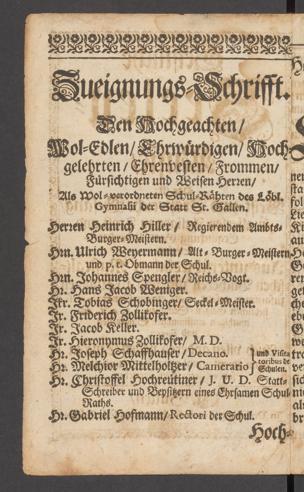 Zueignungs-Schrifft.
Den Hochgeachten/
Wol-Edlen/ Ehrwürdigen/ Hoch-
gelehrten/ Ehrenvesten/ Frommen/
Fürsichtigen und Weisen Herren/
Als Wol-verordneten Schul-Rähten des Löbl.
Gymnasii der Statt St. Gallen.
Herren Heinrich Hiller/ Regierendem Ambts-
Burger-Meistern.
Hrn. Ulrich Weyermann/ Alt-Burger-Meistern
und p. t. Obmann der Schul.
Hrn. Johannes Spengler/ Reichs-Vogt.
Hr. Hans Jacob Weniger.
Jkr. Tobias Schobinger/ Seckel-Meister.
Jr. Friderich Zollikofer.
Jr. Jacob Keller.
Jr. Hieronymus Zollikofer/ M. D.
Hr. Joseph Schaffhauser/ Decano.
Hr. Melchior Mittelholtzer/ Camerario
und Visita-
toribus der
Schulen.
Hr. Christoffel Hochreütiner/ J. U. D. Statt-
Schreiber und Beysitzern eines Ehrsamen Schul-
Raths.
Hr. Gabriel Hofmann/ Rectori der Schul.
Hoch-